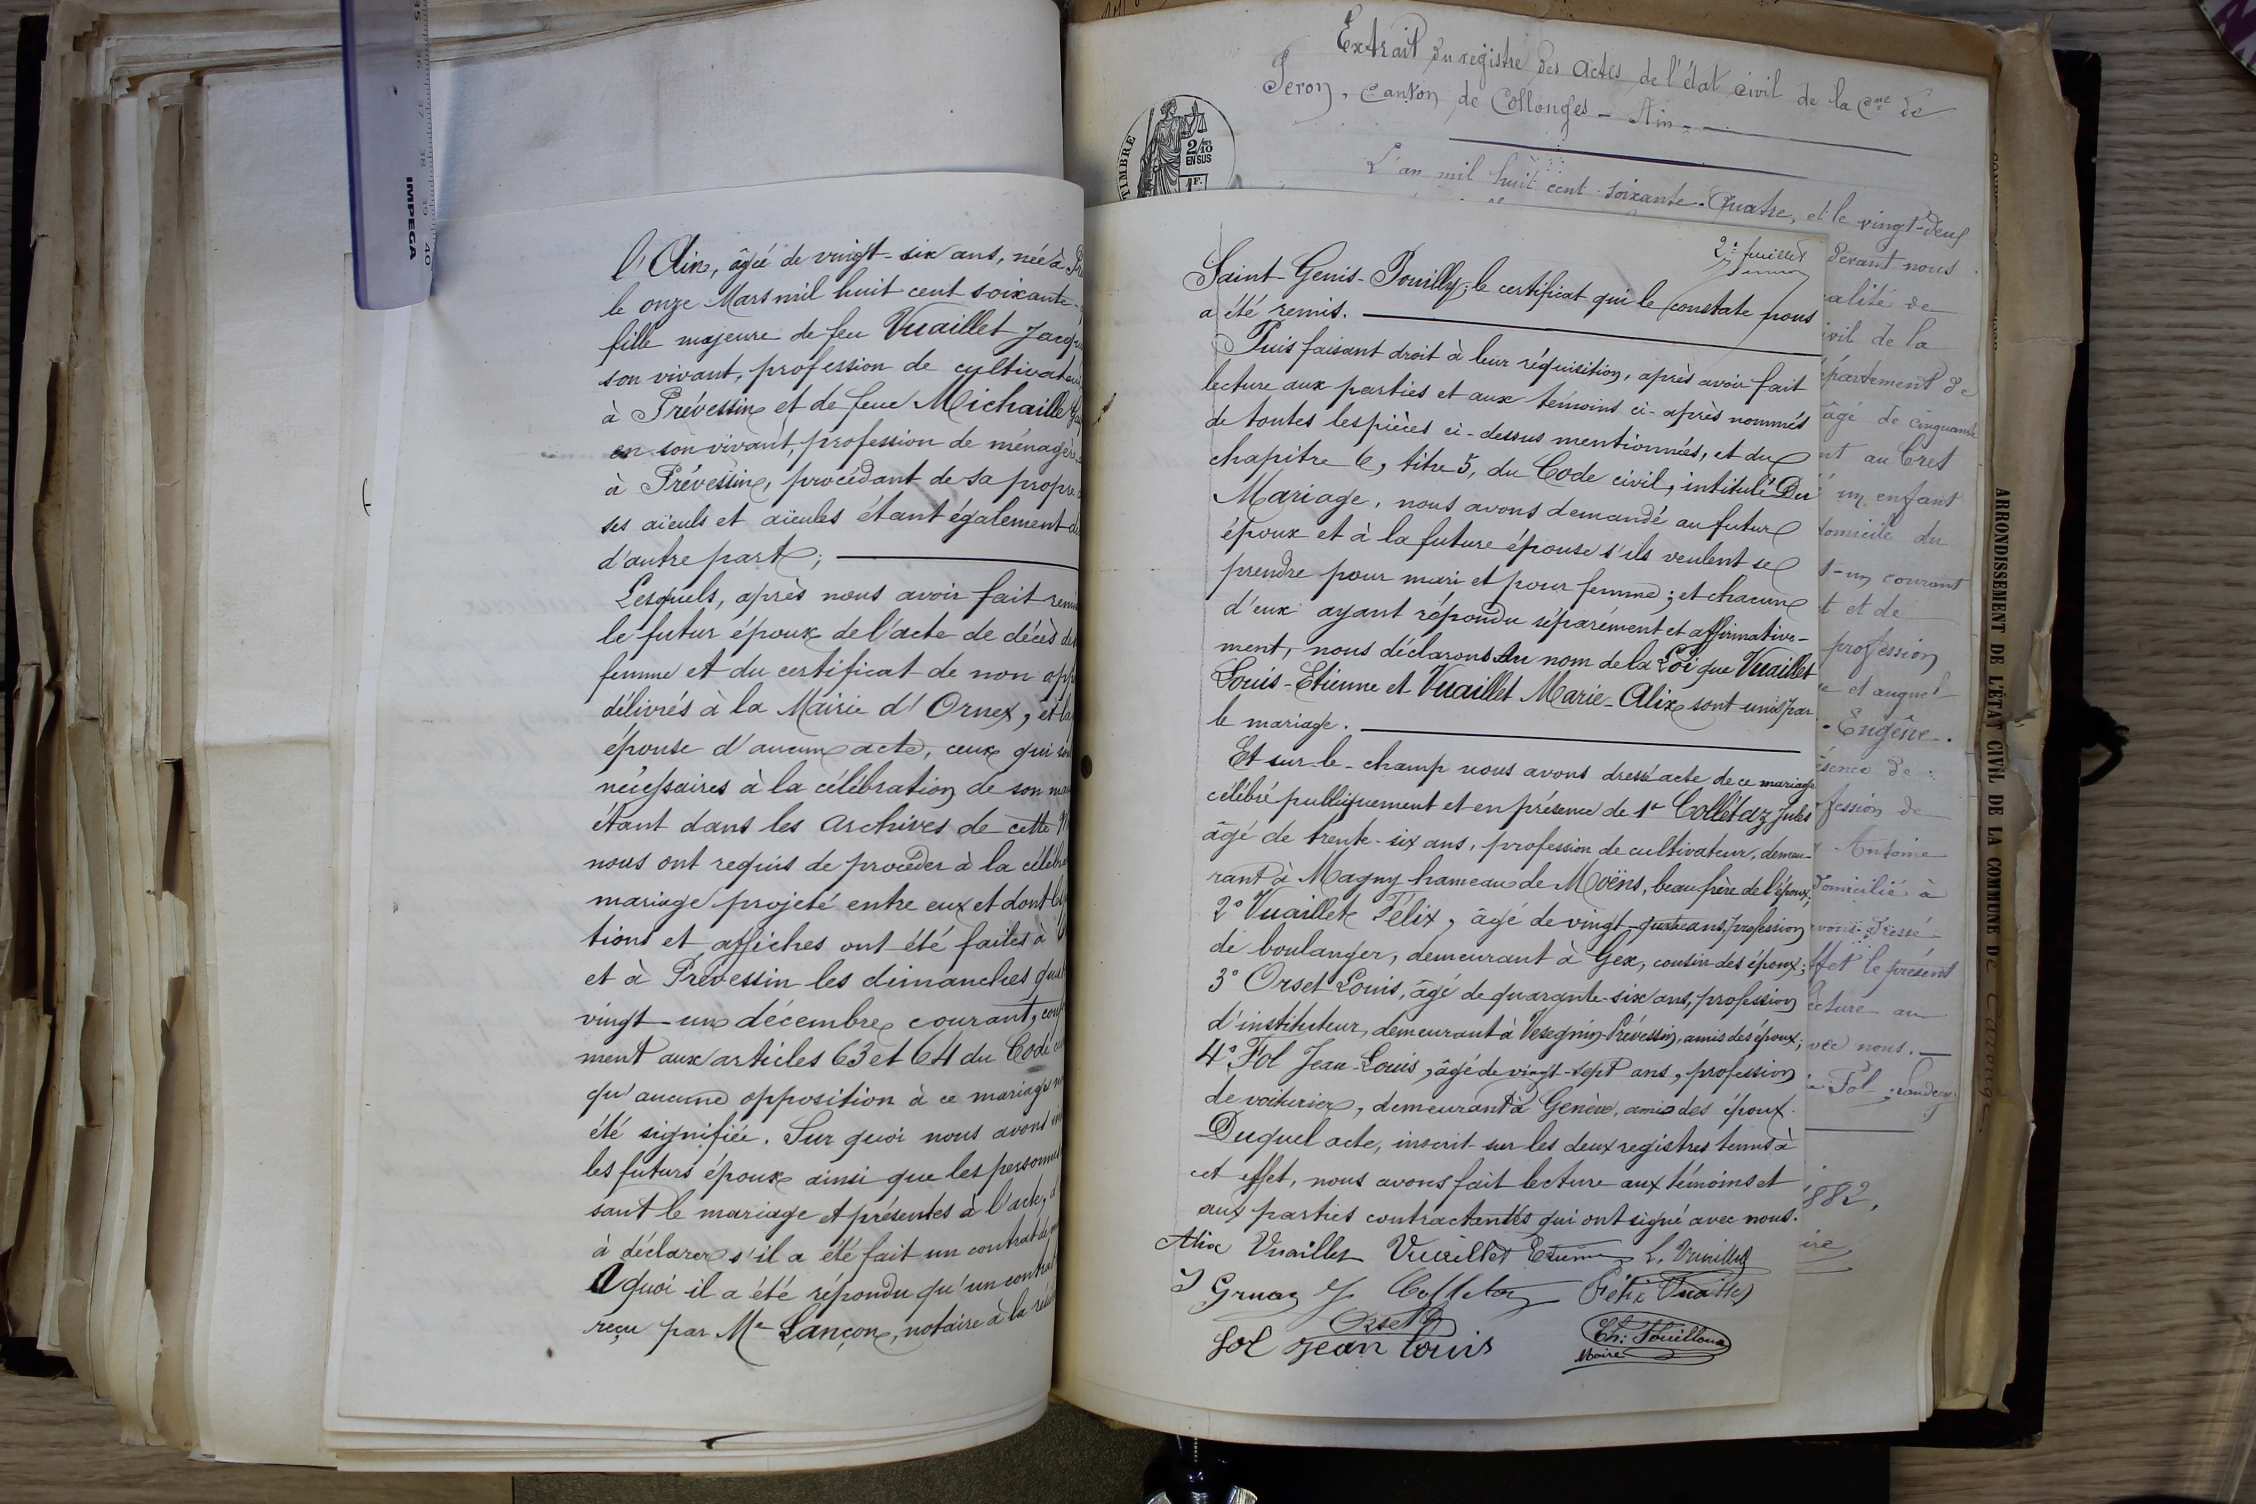 l'Ain, âgée de vingt-six ans, née à
le onze Mars mil huit cent soixante-
fille majeure de feu Vuaillet
son vivant, profession de cultivateur
à Prévessin et de feue Michaille
en son vivant, profession de ménagère
à Prévessin, procédant de sa propre
ses aïeuls et aïeules étant également
d'autre part;
Lesquels, après nous avoir fait
le futur époux de l'acte de décès de
femme et du certificat de non
délivrés à la Mairie d'Ornex, et la
épouse d'aucun acte, ceux qui
nécessaires à la célébration de son
étant dans les archives de cette
nous ont requis de procéder à la
mariage projeté entre eux et dont
tions et affiches ont été faites à
et à Prévessin les dimanches
vingt-un décembre courant,
ment aux articles 63 et 64 du Code
qu'aucune opposition à ce mariage
été signifiée. Sur quoi nous avons
les futurs époux ainsi que les
sant le mariage et présentes à l'acte,
à déclarer s'il a été fait un contrat
A quoi il a été répondu qu'un contrat
reçu par Me Lançon, notaire à la
Extrait du registre des actes de l'état civil de la Cne de
Peron, canton de Collonges - Ain -
TIMBRE
2/10
EN SUS
1F.
L'an mil huit cent soixante-quatre, et le vingt-deux
2e feuillet
Saint-Genis-Pouilly; le certificat qui le constate nous
a été remis.
Puis faisant droit à leur réquisition, après avoir fait
lecture aux parties et aux témoins ci-après nommés
de toutes les pièces ci-dessus mentionnées, et du
chapitre 6, titre 5, du Code civil, intitulé Du
Mariage, nous avons demandé au futur
époux et à la future épouse s'ils veulent se
prendre pour mari et pour femme; et chacun
d'eux ayant répondu séparément et affirmative-
ment, nous déclarons Au nom de la Loi que Vuaillet
Louis-Etienne et Vuaillet Marie-Alix sont unis par
le mariage.
Et sur-le-champ nous avons dressé acte de ce mariage
célébré publiquement et en présence de 1° Collétaz Jules
âgé de trente-six ans, profession de cultivateur, demeu-
rant à Magny hameau de Moëns, beau frère de l'époux;
2° Vuaillet Félix, âgé de vingt-quatre ans, profession
de boulanger, demeurant à Gex, cousin des époux;
3° Orset Louis, âgé de quarante-six ans, profession
d'instituteur, demeurant à Vesegnin-Prévessin, amis des époux;
4° Fol Jean-Louis, âgé de vingt-sept ans, profession
de voiturier, demeurant à Genève, amis des époux.
Duquel acte, inscrit sur les deux registres tenus à
cet effet, nous avons fait lecture aux témoins et
aux parties contractantes qui ont signé avec nous.
Alix Vuaillet Vuaillet Etienne L. Vuaillet
J Gruaz J Colletaz Félix Vuaillet
Orset
fol jean louis
Maire
devant nous
alité de
ivil de la
épartement de
âgé de cinquante
nt au Cret
un enfant
domicile du
t-un courant
t et de
profession
e et auquel
- Eugène.
ésence de
fession de
Antoine
domicilié à
avons dressé
ffet le présent
ecture au
vec nous.
Fol
1882,
ire
ARRONDISSEMENT DE L'ÉTAT CIVIL DE LA COMMUNE DE
IMPEGA
38
39
40